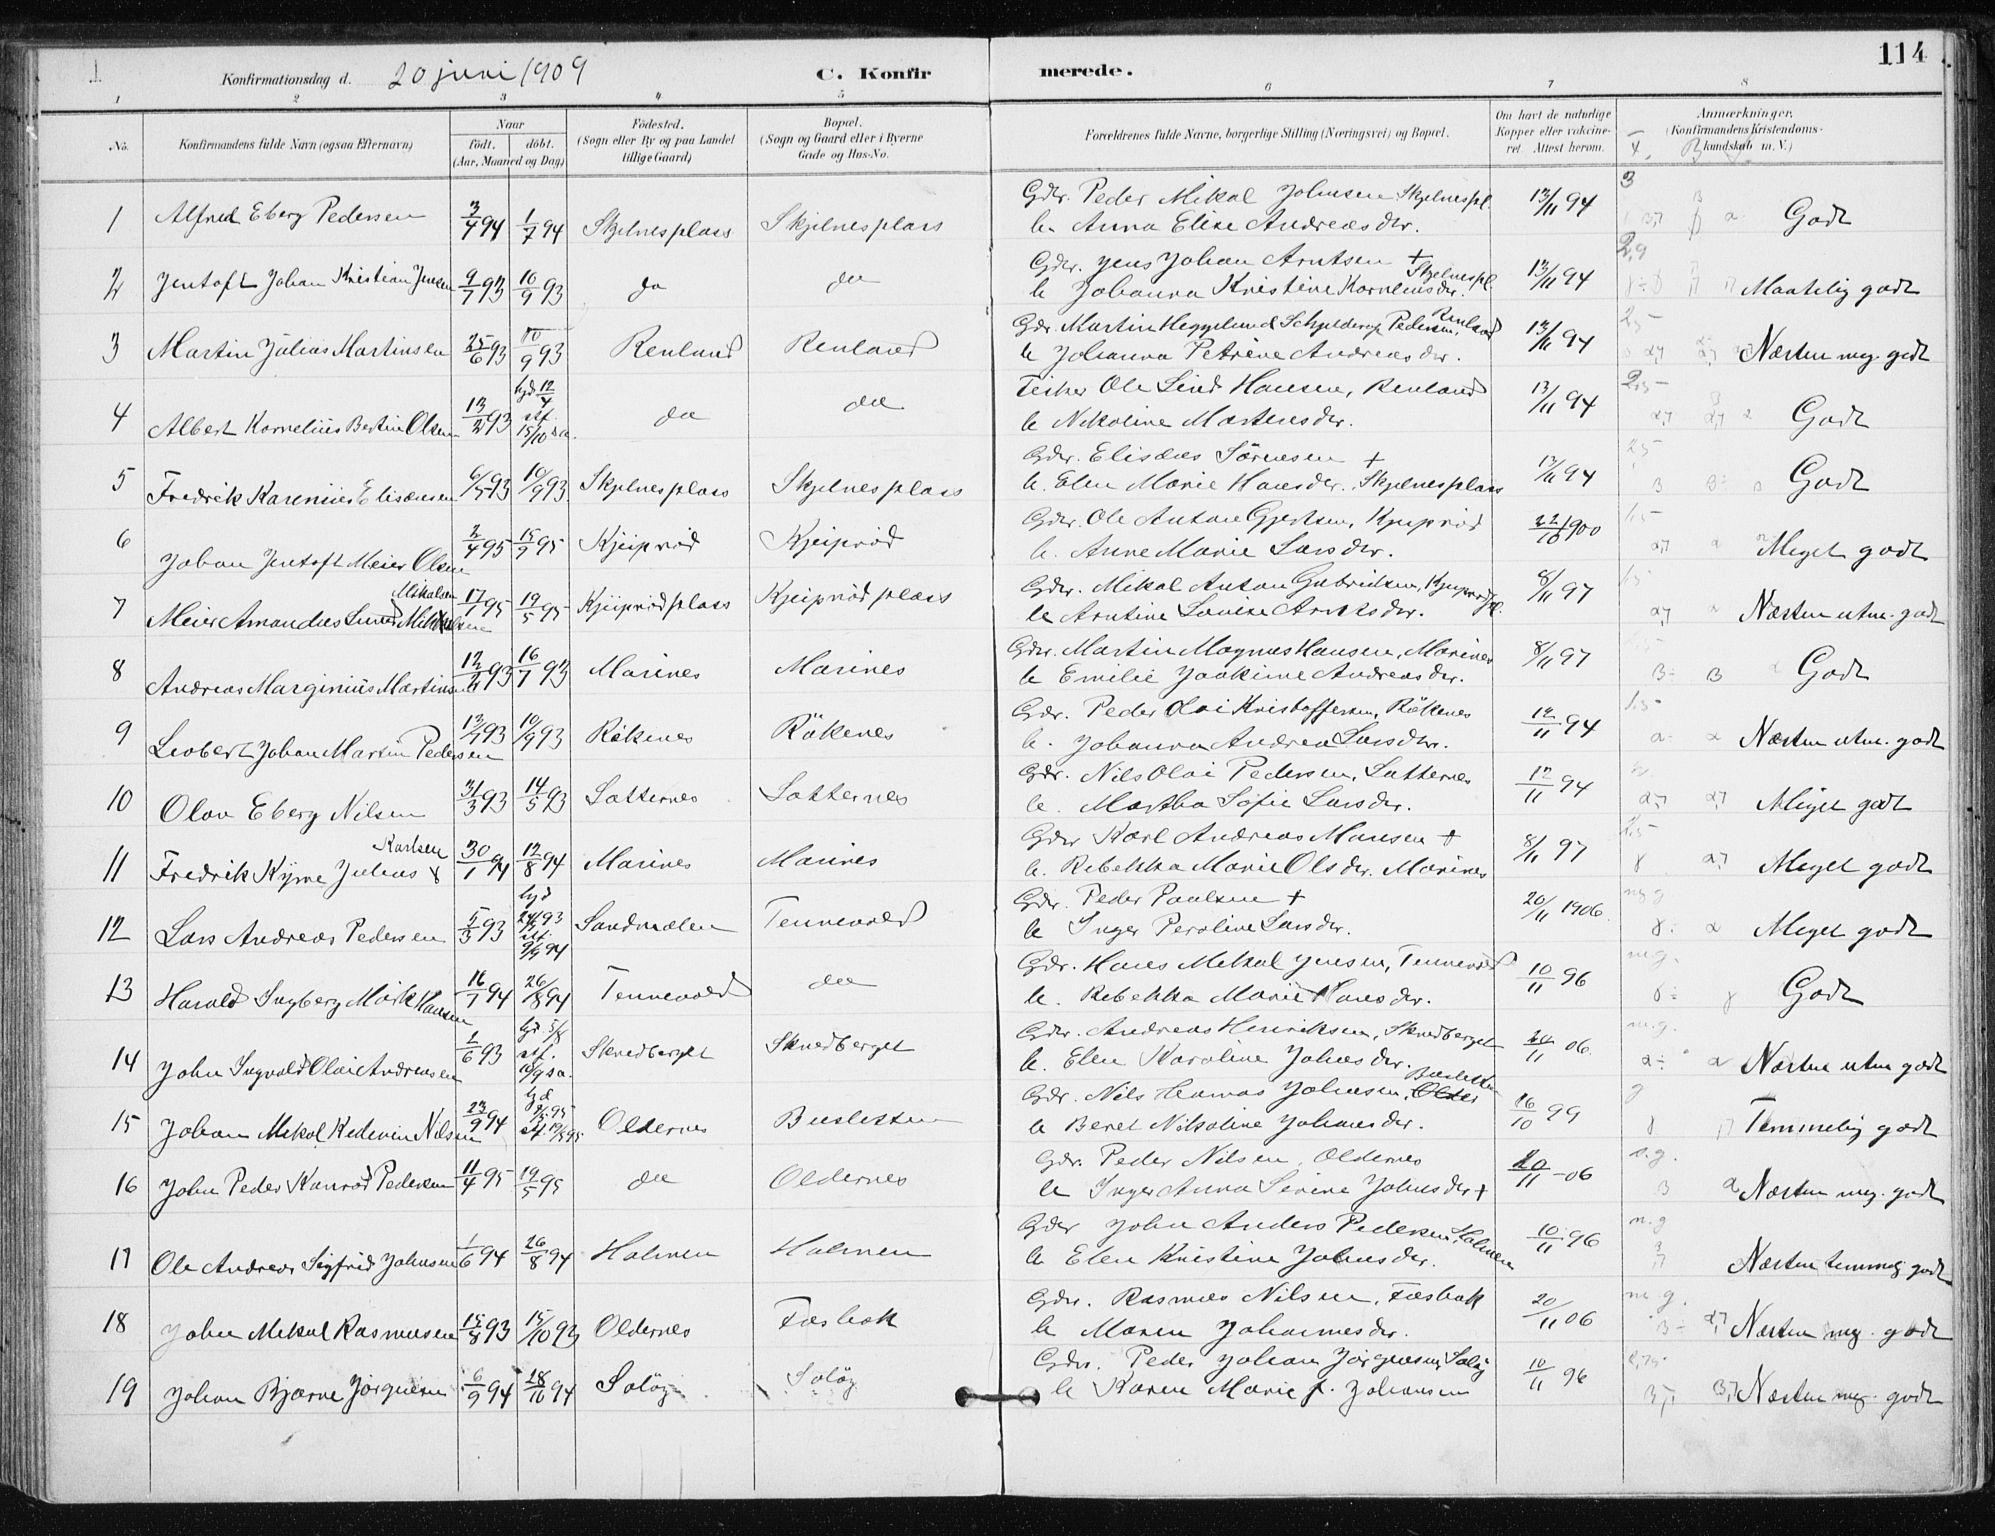 114
Konfirmationsdag d. 20 juni 1909 C. Konfirmerede.
1 2 3 4 5 6 7 8
No. Konfirmandens fulde Navn (ogsaa Efternavn) Naar født. døbt. (Aar, Maaned og Dag) Fødested. (Sogn eller By og paa Landet tillige Gaard) Bopæl. (Sogn og Gaard eller i Byerne Gade og Hus-No. Forældrenes fulde Navne, borgerlige Stilling (Næringsvei) og Bopæl. Om havt de naturlige Kopper eller vakcineret. Attest herom. Anmærkninger. (Konfirmandens Kristendomskundskab m. V.)
1 Alfred Eberg Pedersen 3/4 94 1/7 94 Skjelnesplass Skjelnesplass Gdr. Peder Mikal Johnsen Skjelnespl. 13/11 94 Godt
h. Anna Elise Andreasdtr.
2 Jentoft Johan Kristian Jensen 9/7 93 10/9 93 do do Gdr. Jens Johan Arntsen + Skjelnespl. 13/11 94 Maatelig godt
h. Johanna Kristine Korneliusdtr.
3 Martin Julius Martinsen 25/6 93 10/9 93 Renland Renland Gdr. Martin Heggelund Schjelderup Pedersen, Renland 13/11 94 Næsten meg. godt
h Johanna Petrine Andreasdtr.
4 Albert Kornelius Bertin Olsen 13/2 93 hjd 12/4 stf. 15/10 s.a. do do Fisker Ole Lind Hansen, Renland 13/11 94 Godt
h Nikoline Martensdtr.
5 Fredrik Karenius Elisæusen 6/5 93 10/9 93 Skjelnesplass Skjelnesplass Gdr. Elisæus Sørensen + 13/11 94 Godt
h. Elen Marie Hansdtr. Skjelnesplass
6 Johan Jentoft Meier Olsen 2/4 95 15/9 95 Kjeiprød Kjeiprød Gdr. Ole Anton Gjertsen, Kjeiprød 22/10 1900 Meget godt
h. Anne Marie Larsdtr.
7 Meier Amandus Lund Mikalsen 17/1 95 19/5 95 Kjeiprødplass Kjeiprødplass Gdr. Mikal Anton Gabrielsen, Kjeiprødpl. 8/11 97 Næsten utm. godt
h Arntine Lovise Arntsdtr.
8 Andreas Marginius Martinsen 93 16/7 93 Marines Marines Gdr. Martin Magnus Hansen, Marines 8/11 97 Godt
h Emilie Joakime Andreasdtr.
9 Leobert Johan Martin Pedersen 93 10/9 93 Rökenes Rökenes Gdr. Peder Olai Kristoffersen, Rökenes 12/11 94 Næsten utm. godt
h. Johanna Andrea Larsdtr.
10 Olav Eberg Nilsen 31/3 93 14/5 93 Satternes Satternes Gdr. Nils Olai Pedersen, Satternes 12/11 94 Meget godt
h. Martha Sofie Larsdtr.
11 Fredrik Kyrre Julius Karlsen 30/1 94 12/8 94 Marines Marines Gdr Karl Andreas Hansen + 8/11 97 Meget godt
h. Rebekka Marie Olsdtr. Marines
12 Lars Andreas Pedersen 5/3 93 hjd 93 stf. 94 Sandmælen Tennevold Gdr. Peder Paulsen + 20/11 1906. Meget godt
h Inger Peroline Larsdtr.
13 Harald Ingberg Mörk Hansen 16/1 94 26/8 94 Tennevold do Gdr. Hans Mikal Jensen, Tennevold 10/11 96 Godt
h. Rebekka Marie Hansdtr.
14 John Ingvald Olai Andreassen 2/6 93 hjd. 5/8 stf. 10/9 s.a. Skredberget Skredberget Gdr. Andreas Henriksen, Skredberget 20/11 06. Næsten utm godt
h. Elen Karoline Johnsdtr.
15 Johan Mikal Kederin Nilsen 23/9 94 hjd 95 stf. Oldernes Busletten Gdr. Nils Hermas Johnsen, Busletten 16/10 99 Temmelig godt
h Beret Nikoline Johansdtr.
16 John Peder Konrad Pedersen 11/4 95 19/5 95 do Oldernes Gdr. Peder Nilsen, Oldernes 20/11 - 06 Næsten meg. godt
h Inger Anna Sirine Johnsdtr +
17 Ole Andreas Sigfrid Johnsen 1/6 94 26/8 94 Holmen Holmen Gdr John Anders Pedersen, Holmen 10/11 96 Næsten temmelig godt
h Elen Kristine Johnsdtr.
18 John Mikal Rasmusen 15/8 93 15/10 93 Oldernes Fæsbok Gdr. Rasmus Nilsen, Fæsbok 20/11 06 Næsten meg. godt
h Maren Johannesdtr.
19 Johan Bjarne Jörgensen 6/9 94 28/10 94 Salöy Salöy Gdr. Peder Johan Jörgensen, Salöy 10/11 96 Næsten meg. godt
h Karen Marie f. Johansen